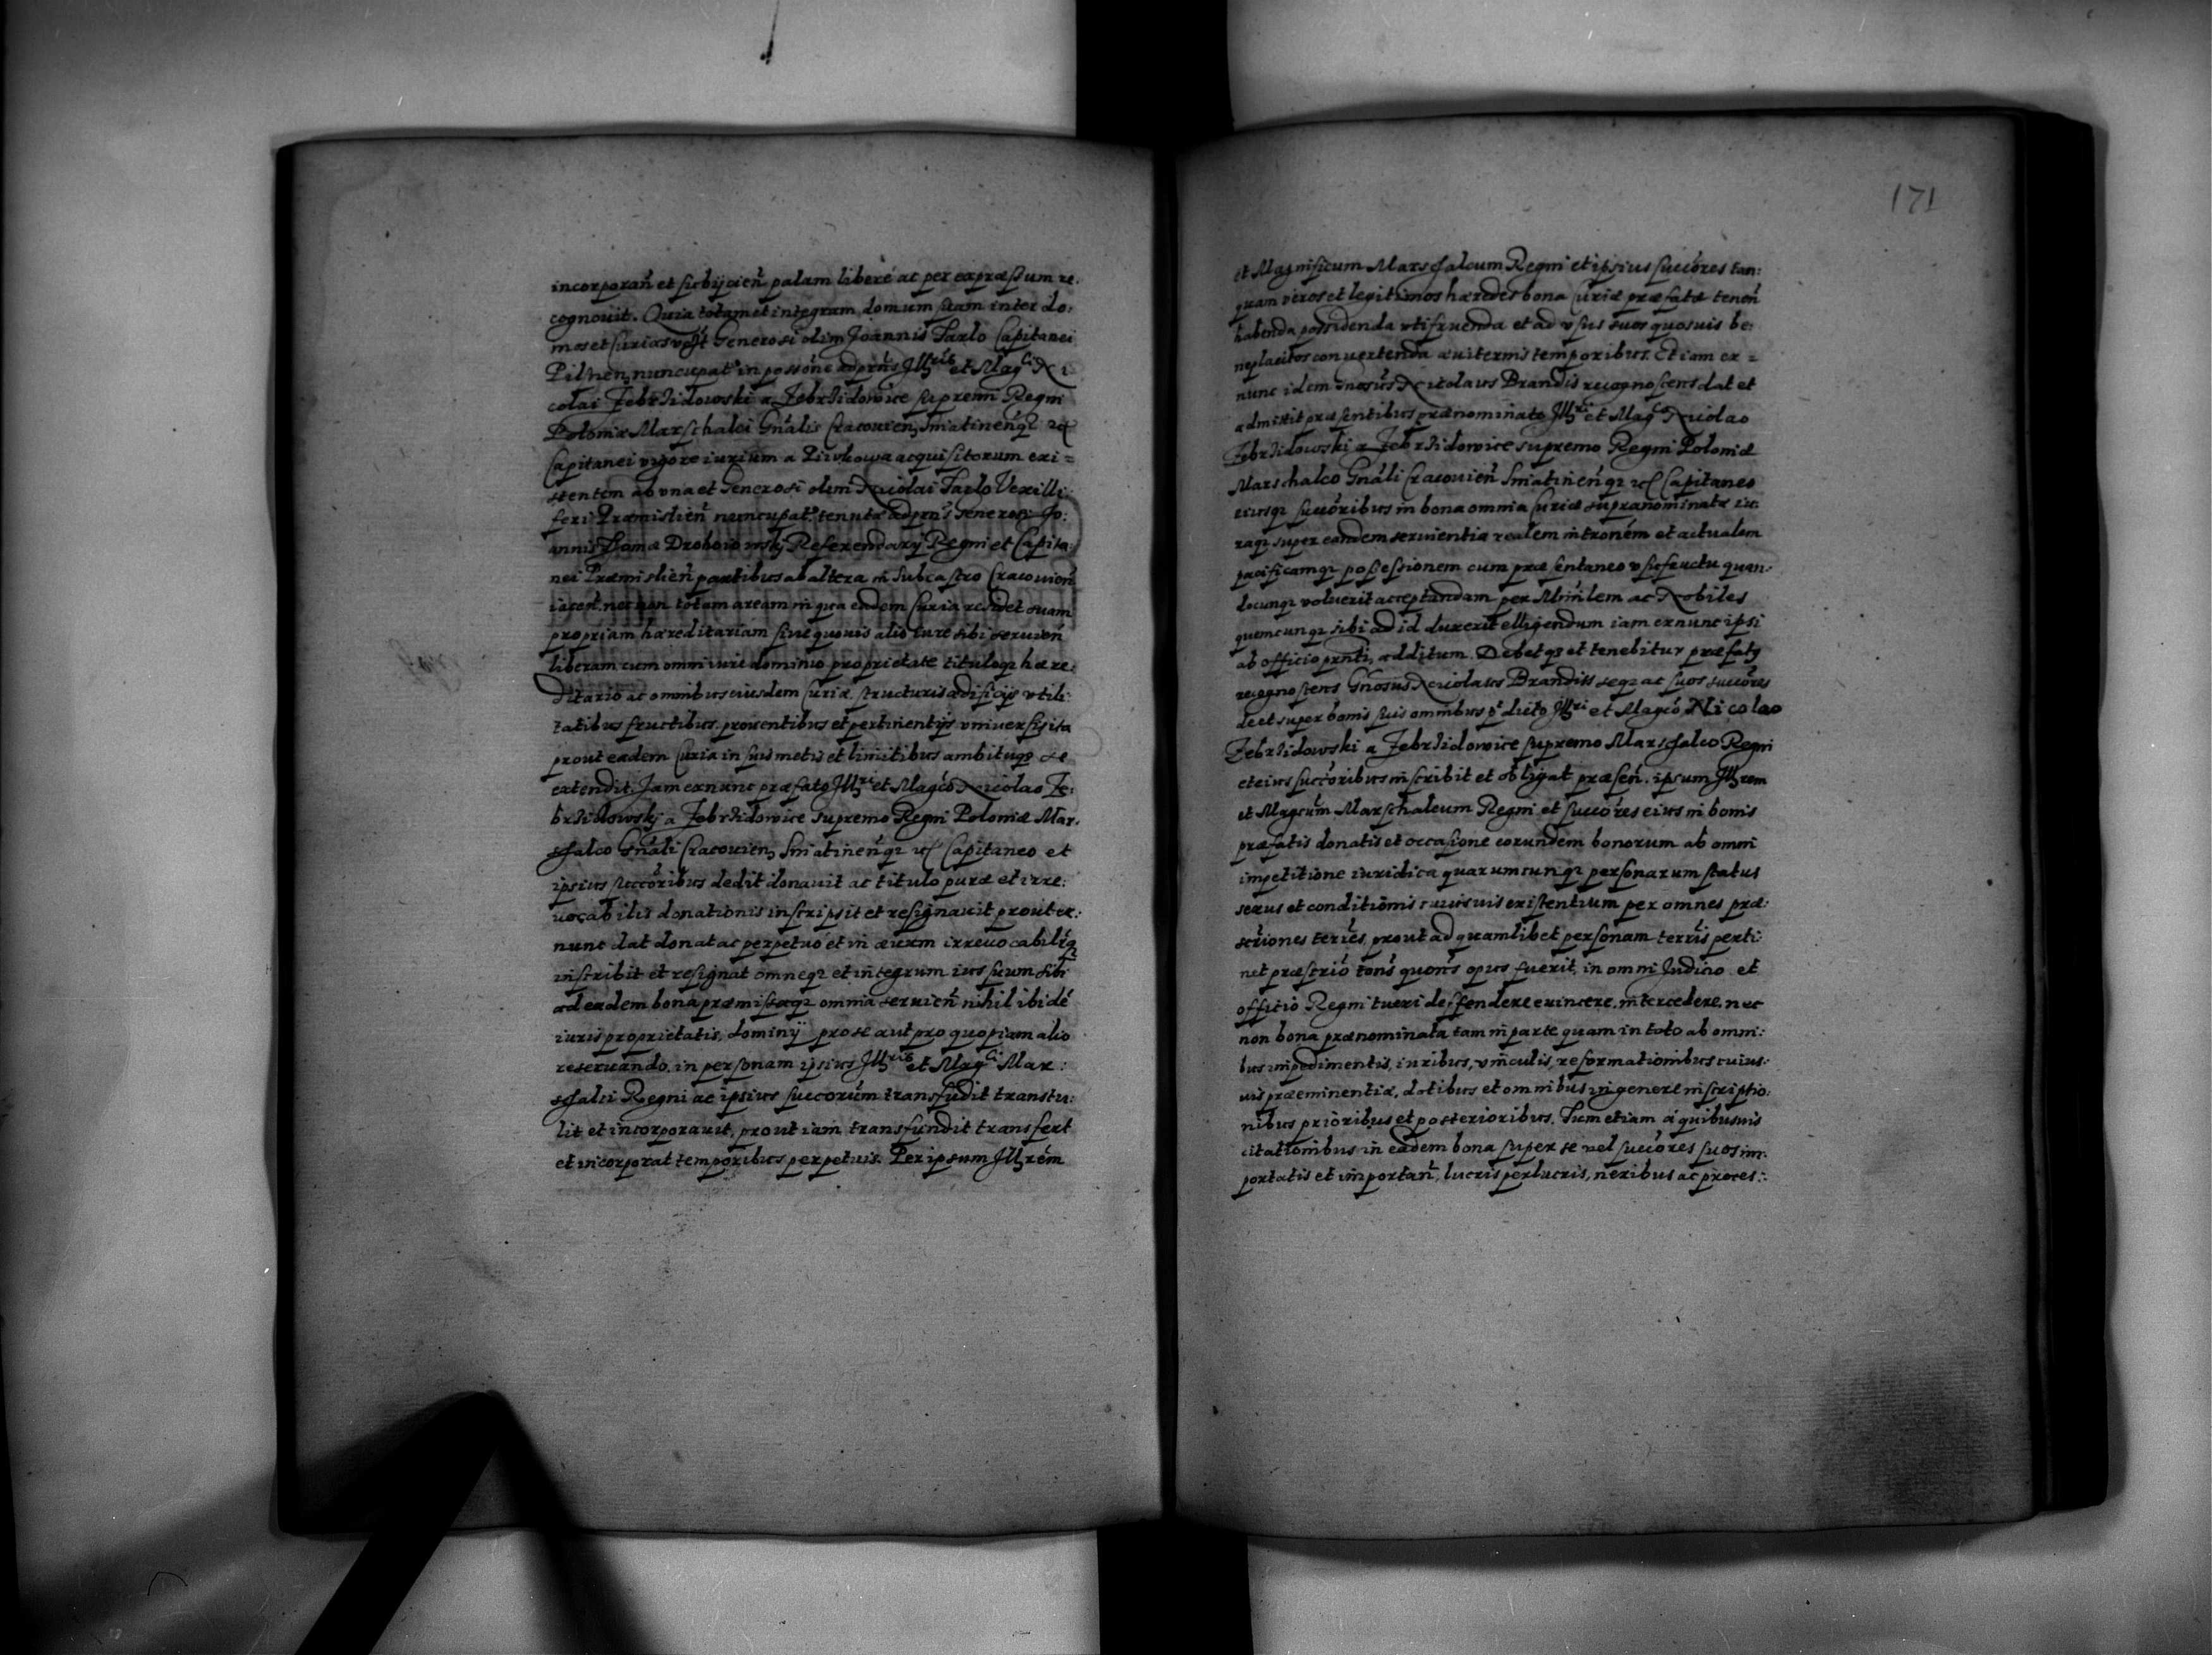 incorporañ et subijcieñ palam liberè ac per expræssum re.
cognouit. Quia totam et integram domum suam inter do:
mos et Curias Generosi olim Joannis Tarlo Capitanei
Pilznen nuncupat in possone ad prns Jllris et Magci Ni
colai Zebrzidowski a Zebrzidowice supremi Regni
Poloniæ Marschalci Gnalis Cracouien Sniatineñq
Capitanei vigore iurium a Piwkowa acquisitorum exi=
stentem ab vna et Generosi olim Nicolai Tarlo Vexilli:
feri Præmislieñ nuncupat tenutæ ad prns Generosi Jo:
annis Thomæ Drohoiowskj Referendarij Regni et Capita:
nei Præmislieñ partibus ab altera in Subcastro Cracouień
iaceñ necnon totam aream in qua eadem Curia residet suam
propriam hæreditariam siue quouis alio iure sibi seruień
liberam cum omni iure dominio proprietate tituloq hære:
ditario ac omnibus eiusdem Curiæ structuris ædificijs vtili:
tatibus fructibus prouentibus et pertinentijs vniuersis ita
prout eadem Curia in suis metis et limitibus ambituq se
extendit. Jam exnunc præfato Jllri et Magco Nicolao Ze:
brzidowskj a Zebrzidowice Supremo Regni Poloniæ Mar.
schalco Gnali Cracouien Sniatineñq Capitaneo et
ipsius succoribus dedit donauit ac titulo puræ et irre:
uocabilis donationis inscripsit et resignauit prout ex:
nunc dat donat ac perpetuo et in æuum irreuocabilrq
inscribit et resignat omneq et integrum ius suum sibi
ad eadem bona præmissaq omnia seruień nihil ibidé
iuris proprietatis, dominÿ pro se aut pro quopiam alio
reseruando, in personam ipsius Jllris et Magci Mar:
schalci Regni ac ipsius succorum transfudit transtu:
lit et incorporauit, prout iam transfundit transfert
et incorporat temporibus perpetuis. Per ipsum Jllrém
171
et Magnificum Marschalcum Regni et ipsius succores tan:
quam veros et legitimos hæredes bona Curiæ præfatæ teneñ
habenda possidenda vtifruenda et ad vsus suos quosuis be:
neplacitos conuertenda æuiternis temporibus. Et iam ex=
nunc idem Gnosus Nicolaus Brandis recognoscens dat et
admittit præsentibus prænominato Jllri et Magco Nicolao
Zebrzidowski a Zebrzidowice supremo Regni Poloniæ
Marschalco Gnali Cracouień Sniatineñq Capitaneo
eiusq succoribus in bona omnia Curiæ supranominatæ iu:
raq super eandem seruientia realem intronem et actualem
pacificamq possessionem cum præsentaneo vsufructu quan:
docunq voluerit acceptandam per Minlem ac Nobiles
quemcunq sibi ad id duxerit elligendum iam exnunc ipsi
ab officio prnti additum. Debetq et tenebitur præfatq
recognoscens Gnosus Nicolaus Brandiss seq ac suos succores
de et super bonis suis omnibus pt dicto Jllri et Magco Nicolao
Zebrzidowski a Zebrzidowice supremo Marschalco Regni
et eius succoribus inscribit et obligat præseñ. ipsum Jllrem
et Magcum Marschalcum Regni et succores eius in bonis
præfatis donatis et occasione eorundem bonorum ab omni
impetitione iuridica quarumcunq personarum status
sexus et conditionis cuiusuis existentium per omnes præ:
scriones terres, prout ad quamlibet personam terris perti:
net præscrio tons quons opus fuerit, in omni Judicio et
officio Regni tueri deffendere euincere, intercedere, nec
non bona prænominata tam in parte quam in toto ab omni:
bus impedimentis, iuribus, vinculis, reformationibus cuius:
uis præeminentiæ, dotibus et omnibus in genere inscriptio:
nibus prioribus et posterioribus. Tum etiam à quibusuis
citationibus in eadem bona super se vel succores suos im:
portatis et importañ, lucris perlucris, neribus ac proces: